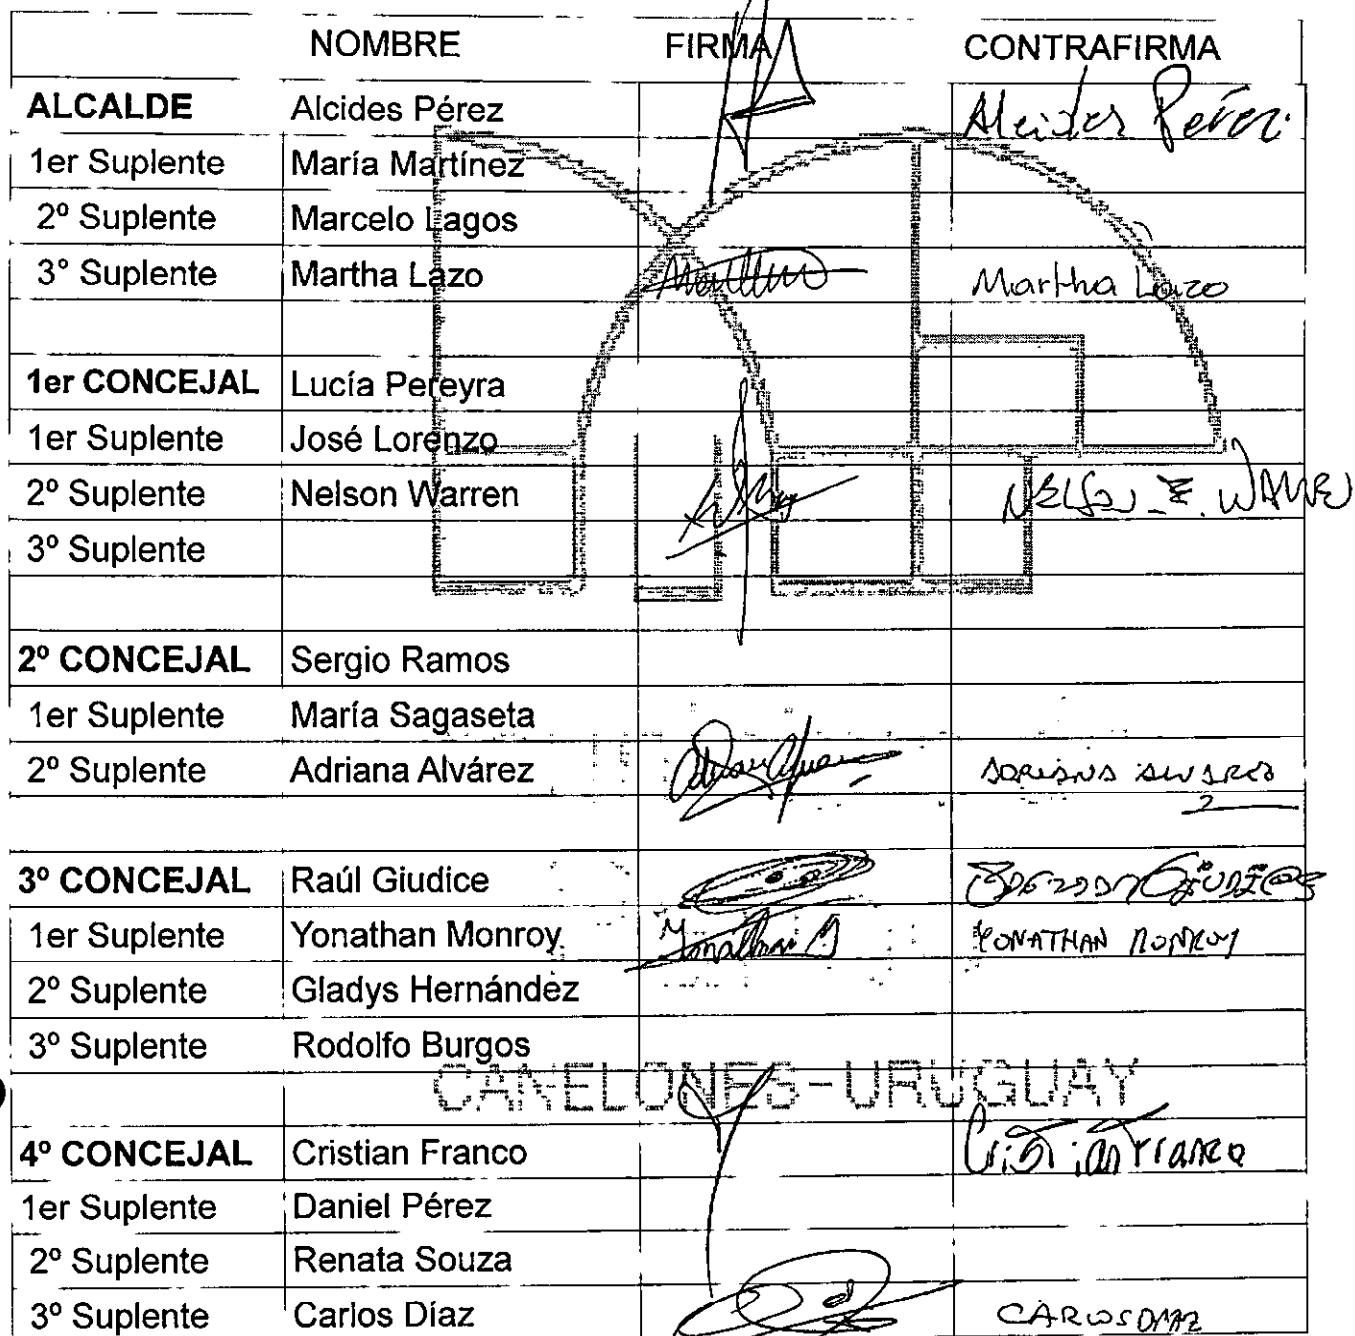 NOMBRE FIRMA CONTRAFIRMA
ALCALDE Alcides Pérez Alcides Pérez
1er Suplente María Martínez
2º Suplente Marcelo Lagos
3° Suplente Martha Lazo Martha Lazo
1er CONCEJAL Lucía Pereyra
1er Suplente José Lorenzo
2º Suplente Nelson Warren NELSON E. WARREN
3º Suplente
2º CONCEJAL Sergio Ramos
1er Suplente María Sagaseta
2º Suplente Adriana Alvárez ADRIANA ALVAREZ
3º CONCEJAL Raúl Giudice
1er Suplente Yonathan Monroy Yonathan M YONATHAN MONROY
2º Suplente Gladys Hernández
3º Suplente Rodolfo Burgos
CANELONES-URUGUAY
4º CONCEJAL Cristian Franco Cristian Franco
1er Suplente Daniel Pérez
2º Suplente Renata Souza
3º Suplente Carlos Díaz CARLOS DIAZ